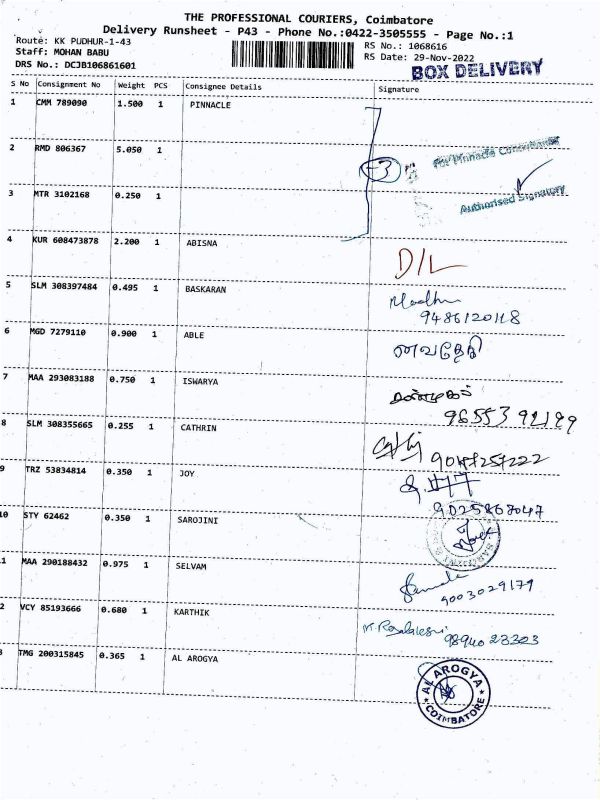 THE PROFESSIONAL COURIERS, Coimbatore
Delivery Runsheet - P43 - Phone No.:0422-3505555 - Page No.:1
Route: KK PUDHUR-1-43
RS No.: 1068616
Staff: MOHAN BABU
RS Date: 29-Nov-2022
DRS No.: DCJB106861601
BOX DELIVERY
S No Consignment No Weight PCS Consignee Details Signature
1 CMM 789090 1.500 1 PINNACLE
2 RMD 806367 5.050 1
3
For Pinnacle
Authorised Signatory
3 MTR 3102168 0.250 1
4 KUR 608473878 2.200 1 ABISNA
D/L
5 SLM 308397484 0.495 1 BASKARAN
Madhu
9486120118
6 MGD 7279110 0.900 1 ABLE
7 MAA 293083188 0.750 1 ISWARYA
8 SLM 308355665 0.255 1 CATHRIN
9047257222
9 TRZ 53834814 0.350 1 JOY
9025868047
10 STY 62462 0.350 1 SAROJINI
1 MAA 290188432 0.975 1 SELVAM
9003029179
2 VCY 85193666 0.680 1 KARTHIK
9894023323
3 TMG 200315845 0.365 1 AL AROGYA
AL AROGYA
COIMBATORE